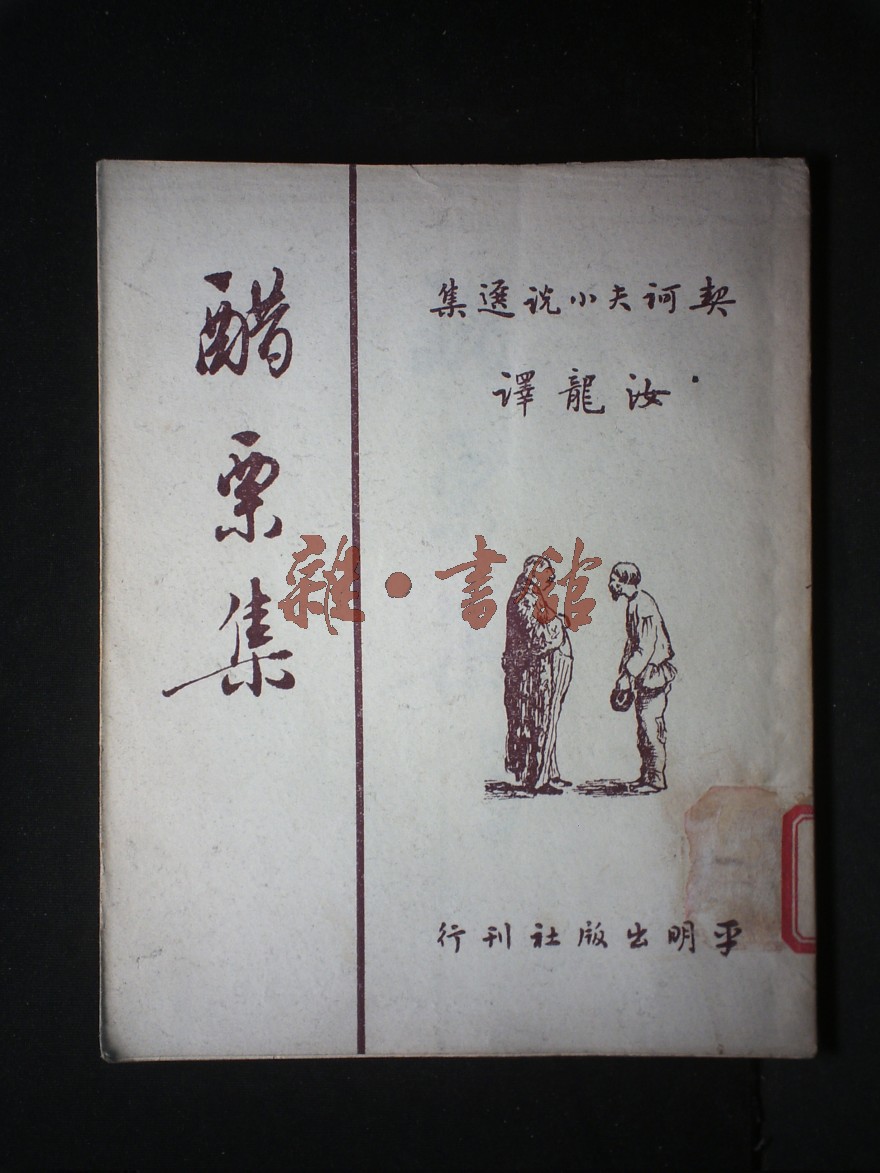 醋栗集
契訶夫小说選集
汝龍譯
雜·書館
平明出版社刊行